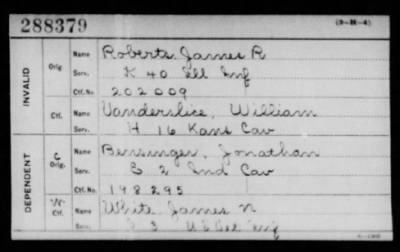 288379
(3-H-4)
INVALID
Orig.
Name
Roberts James R
Serv.
K 40 Ill Inf
Ctf. No.
202009
Ctf.
Name
Vanderslice, William
Serv.
H 16 Kans Cav
DEPENDENT
C
Orig.
Name
Bensinger, Jonathan
Serv.
2 Ind Cav
Ctf. No.
198295
W
Ctf.
Name
White James N
Serv.
Inf